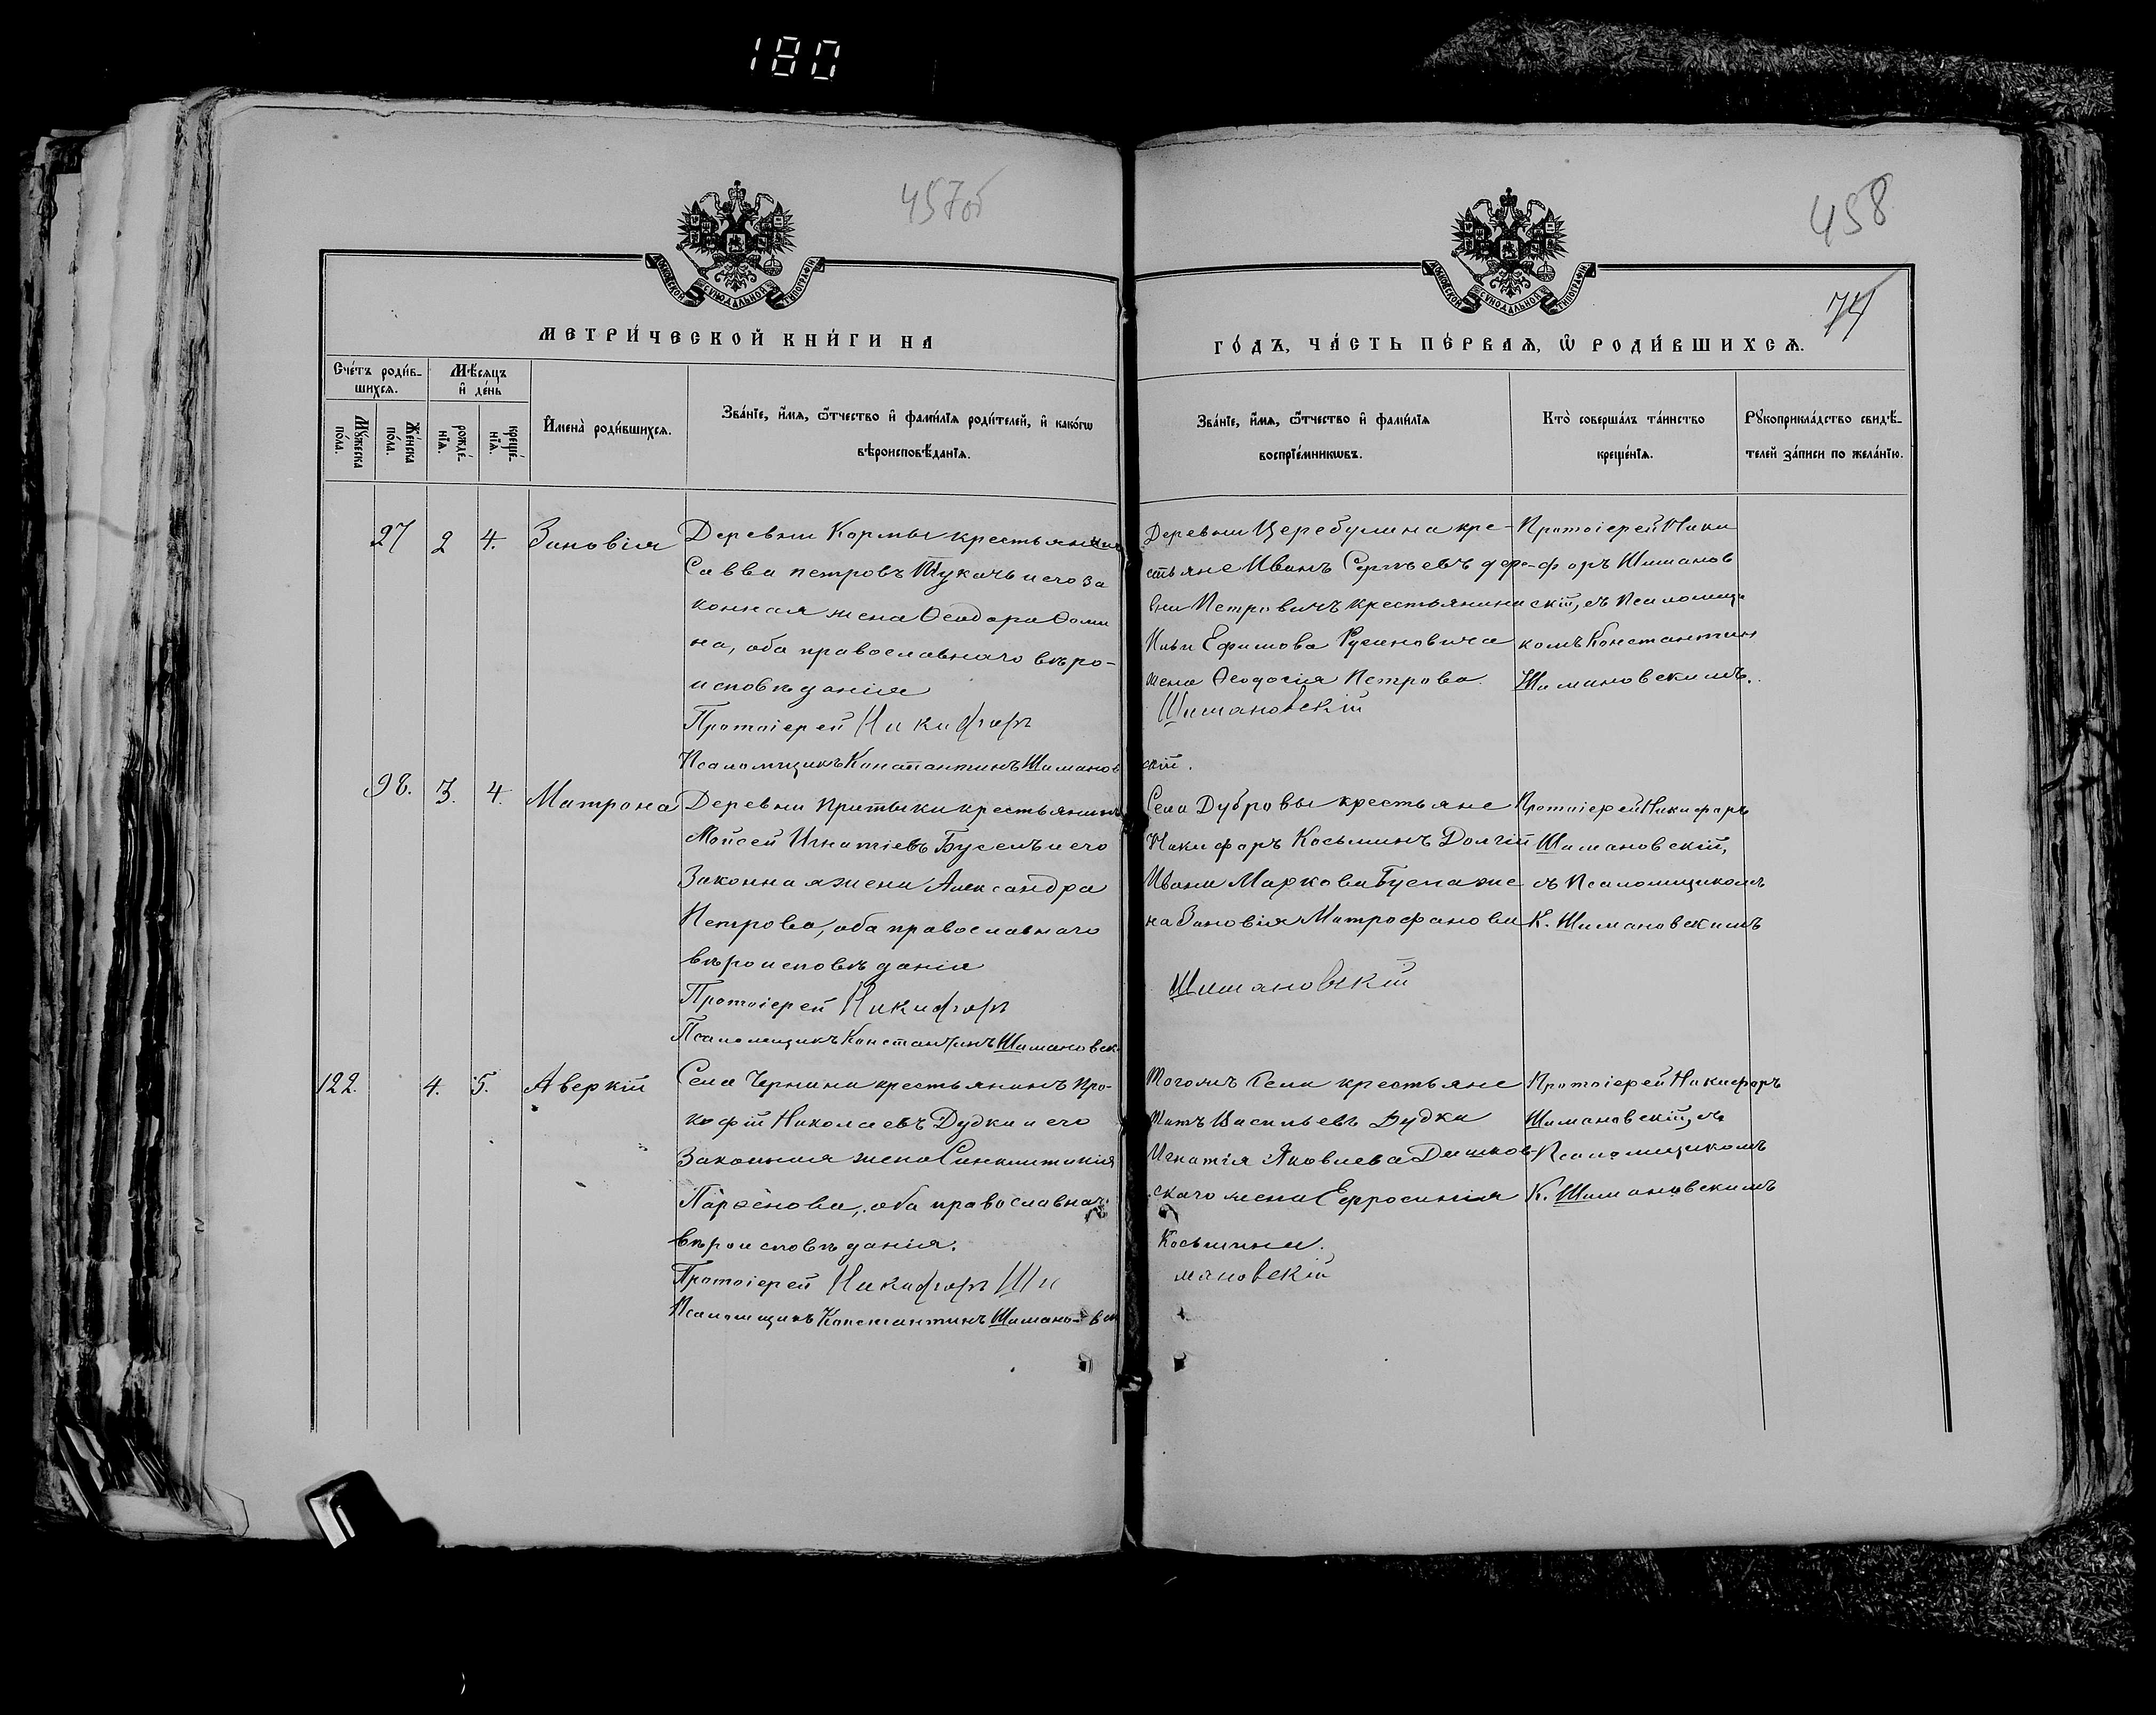 180
457об
458
74
МОСКОВСКОЙ СѴНОДАЛЬНОЙ ТИПОГРАФІИ
МОСКОВСКОЙ СѴНОДАЛЬНОЙ ТИПОГРАФІИ
МЕТРИ́ЧЕСКОЙ КНИ́ГИ НА
ГО́ДЪ, ЧА́СТЬ ПЕ́РВАѦ, Ѡ РОДИ́ВШИХСѦ.
Сче́тъ роди́в-
шихсѧ.
Мѣ́сѧцъ
и҆ де́нь
Мꙋ́жеска
по́ла.
Же́нска
по́ла.
рожде́-
нїѧ.
креще́-
нїѧ.
И҆мена̀ роди́вшихсѧ.
Зва́нїе, и҆́мѧ, ѻ҆́тчество и҆ фами́лїѧ роди́телей, и҆ како́гѡ
вѣроисповѣ́данїѧ.
Зва́нїе, и҆́мѧ, ѻ҆́тчество и҆ фами́лїѧ
воспрїе́мникѡвъ.
Кто̀ соверша́лъ та́инство
креще́нїѧ.
Рꙋкоприкла́дство свидѣ́-
телей за́писи по жела́нїю.
27 2 4. Зиновія
Деревни Кормы крестьянинъ
Савва Петровъ Тукачъ и его за
конная жена Ѳеодора Ѳоми
на, оба православнаго вѣро-
исповѣданія
Протоіерей Никифоръ
Псаломщикъ Константинъ Шиманов
Деревни Церебулина кре-
стьяне Иванъ Сергѣевъ дере-
вни Петровичъ крестьянина
Ильи Ефимова Русиновича
жена Ѳеодосія Петрова
Шимановскій
скій.
Протоіерей Ники
форъ Шиманов
скій, съ Псаломщи
комъ Константин
Шимановскимъ.
98. 3. 4. Матрона
Деревни Притыки крестьянинъ
Мойсей Игнатіевъ Буселъ и его
Законная жена Александра
Петрова, оба православнаго
вѣроисповѣданія
Протоіерей Никифоръ
Псаломщикъ Константинъ Шимановск
Села Дубровы крестьяне
Никифоръ Косьминъ Долгій
Ивана Маркова Бусла же
на Зиновія Митрофанова
Шимановскій
Протоіерей Никифоръ
Шимановскій,
съ Псаломщикомъ
К. Шимановскимъ
122. 4. 5. Аверкій
Села Чернина крестьянинъ Про-
кофій Николаевъ Дудка и его
Законная жена Синклитикія
Парѳенова, оба православнаг
вѣроисповѣданія.
Протоіерей Никифоръ Ши
Псаломщикъ Константинъ Шимановск
Тогожъ Села крестьяне
Титъ Васильевъ Дудка
Игнатія Яковлева Дашков-
скаго жена Ефросинія
Косьмина.
мановскій
Протоіерей Никифоръ
Шимановскій, съ
Псаломщикомъ
К. Шимановскимъ